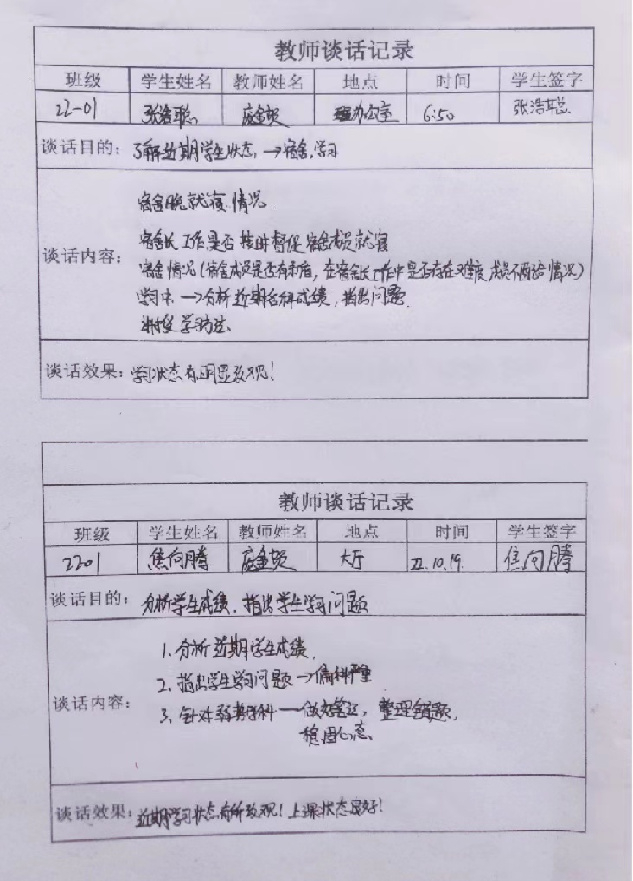 教师谈话记录
班级 学生姓名 教师姓名 地点 时间 学生签字
22-01 张浩聪 办公室 6:50 张浩聪
谈话目的：了解近期学生状态，→宿舍，学习
宿舍晚就寝情况
宿舍长工作是否按时督促宿舍成员就寝
谈话内容：
宿舍情况（宿舍成员是否有矛盾，在宿舍长工作中是否存在难度，成员不配合情况）
学习中 →分析近期各科成绩，指出问题
学习方法。
谈话效果：学习状态有明显改观！
教师谈话记录
班级 学生姓名 教师姓名 地点 时间 学生签字
2201 焦向腾 大厅 22.10.19. 焦向腾
谈话目的：分析学生成绩，指出学生学习问题
1. 分析近期学生成绩.
2. 指出学生学习问题→偏科严重
谈话内容：
3. 针对弱势学科——做好笔记，整理错题，
稳固心态。
谈话效果：近期学习状态有所改观！上课状态良好！